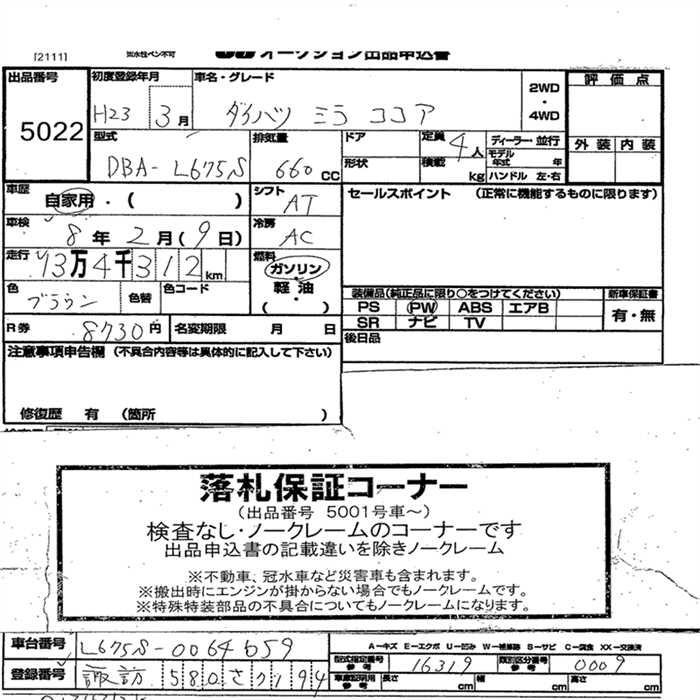 [2111] 油水性ペン不可 オークション出品申込書
出品番号 初度登録年月 車名・グレード 2WD・4WD 評価点
5022 H23 3月 ダイハツ ミラ ココア
型式 排気量 ドア 定員 4人 ディーラー・並行 外装 内装
DBA-L675S 660cc 形状 積載 kg モデル年式 年 ハンドル 左・右
車歴 自家用・( ) シフト AT セールスポイント (正常に機能するものに限ります)
車検 8年2月(9日) 冷房 AC
走行 13万4千312km 燃料 ガソリン
色 ブラウン 色替 色コード 軽油 ( ・ )
装備品(純正品に限り○をつけてください) 新車保証書
PS PW ABS エアB 有・無
SR ナビ TV
R券 8730円 名変期限 月 日 後日品
注意事項申告欄 (不具合内容等は具体的に記入して下さい)
修復歴 有 (箇所 )
落札保証コーナー
(出品番号 5001号車~)
検査なし・ノークレームのコーナーです
出品申込書の記載違いを除きノークレーム
※不動車、冠水車など災害車も含まれます。
※搬出時にエンジンが掛からない場合でもノークレームです。
※特殊特装部品の不具合についてもノークレームになります。
車台番号 L675S-0064659 A-キズ E-エクボ U-凹み W-補修跡 S-サビ C-腐食 XX-交換済
型式指定番号 参考 16319 類別区分番号 参考 0009
登録番号 諏訪 580 さ 7194 車庫証明用 参考 長さ cm 幅 cm 高さ cm